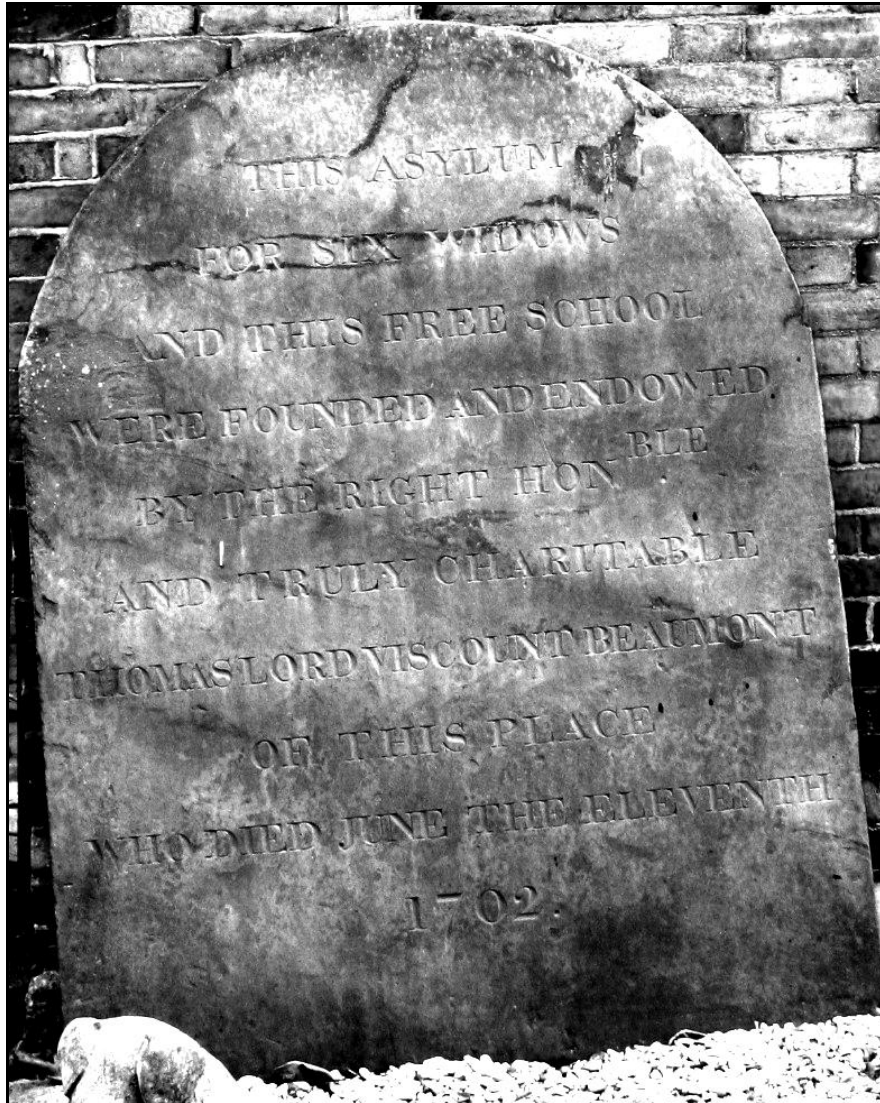 THIS ASYLUM
FOR SIX WIDOWS
AND THIS FREE SCHOOL
WERE FOUNDED AND ENDOWED
BY THE RIGHT HON BLE
AND TRULY CHARITABLE
THOMAS LORD VISCOUNT BEAUMONT
OF THIS PLACE
WHO DIED JUNE THE ELEVENTH
1702.